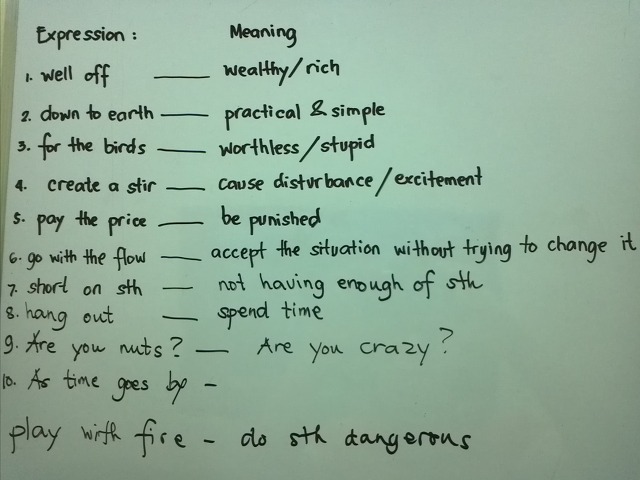 Expression: Meaning
1. well off —— wealthy/rich
2. down to earth —— practical & simple
3. for the birds —— worthless/stupid
4. create a stir —— cause disturbance/excitement
5. pay the price —— be punished
6. go with the flow —— accept the situation without trying to change it
7. short on sth — not having enough of sth
8. hang out — spend time
9. Are you nuts? — Are you crazy?
10. As time goes by -
play with fire - do sth dangerous